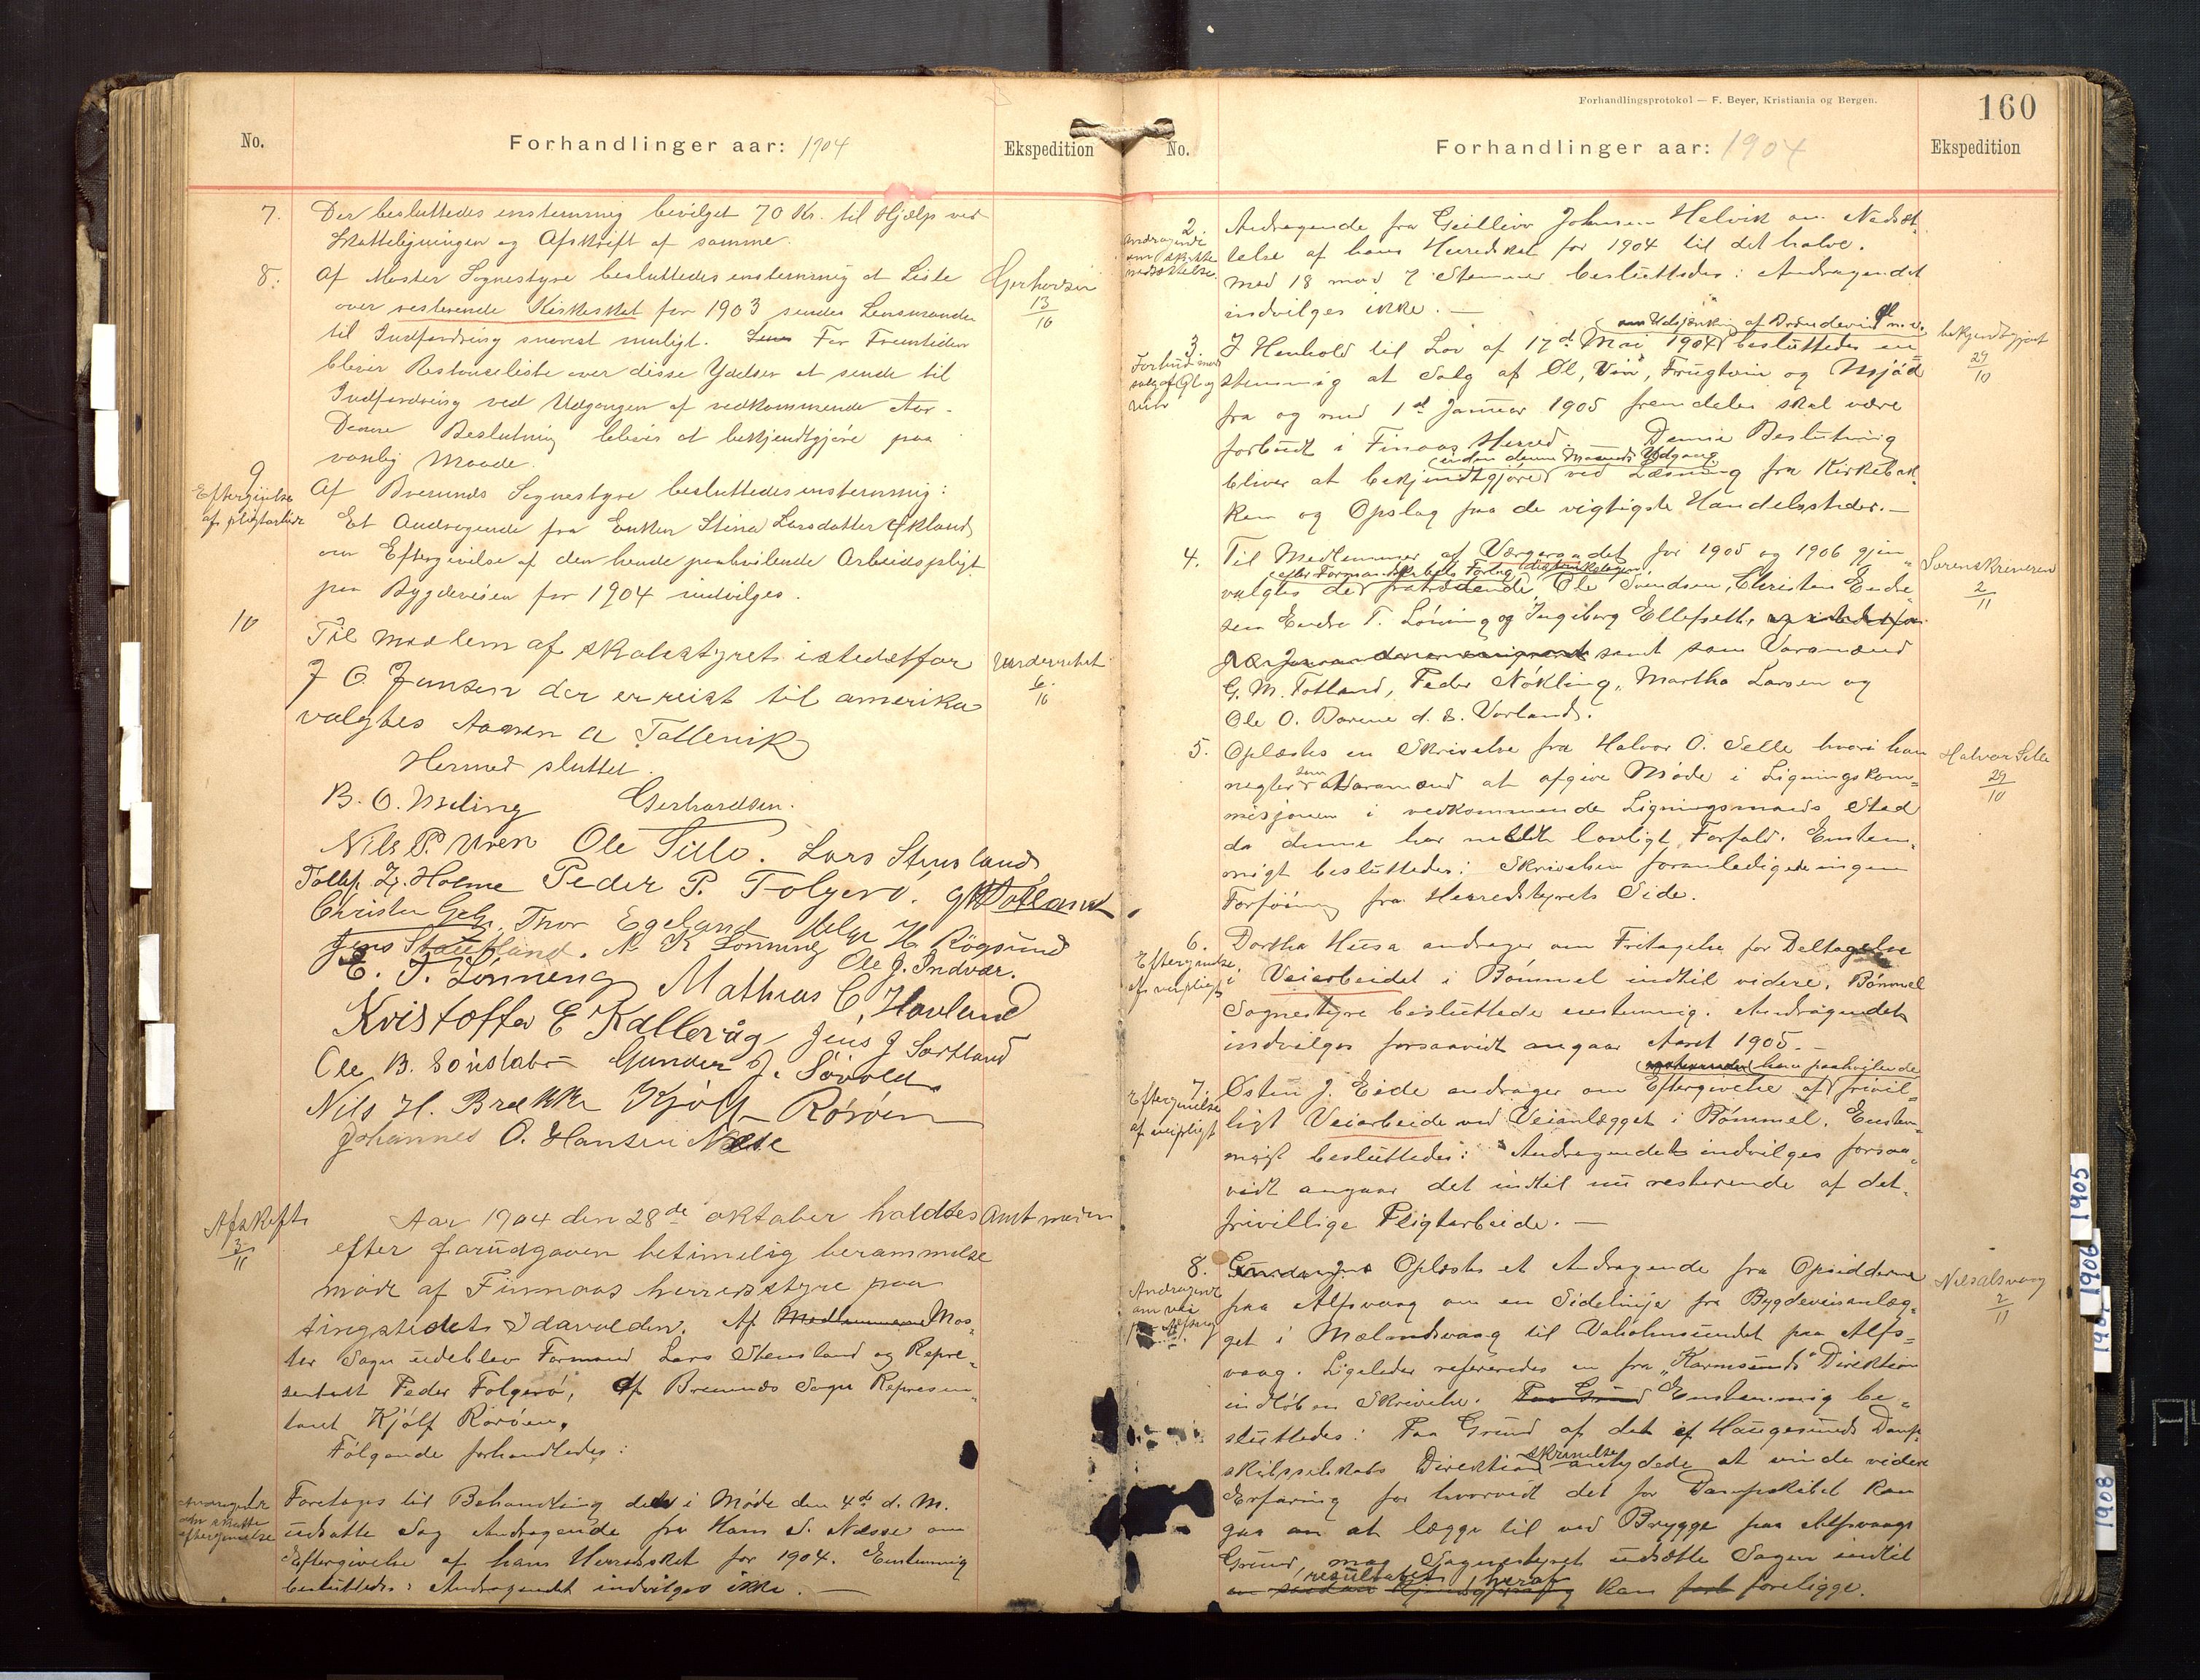 No.
Forhandlinger aar: 1904
Ekspedition
7. Der besluttedes enstemmig bevilget 70 Kr. til Hjælp ved
Skatteligningen og Afskrift af samme.
8. Af Moster Sognestyre besluttedes enstemmig at Liste
over resterende Kirkeskat for 1903 sendes Lensmanden
til Indfordring snarest muligt. For Fremtiden
bliver Restanceliste over disse Ydelser at sende til
Indfordring ved Udgangen af vedkommende Aar.
Denne Beslutning bliver at bekjendtgjøre paa
vanlig Maade.
Gerhardsen
13/10
9
Eftergivelse
af pligtarbeide
Af Bremnes Sognestyre besluttedes enstemmig:
Et Andragende fra Enken Stina Larsdatter Økland
om Eftergivelse af den hende paahvilende Arbeidspligt
paa Bygdeveien for 1904 indvilges.
10
Til medlem af skolestyret istedetfor
J O Jensen der er reist til amerika
valgtes Aamen A Tollevik
Underrettet
6/10
Hermed sluttet
B. O. Meling Gerhardsen.
Nils P Uren Ole Tislo. Lars Stensland
Tollef Lj. Holme Peder P. Folgerø. G M Totland
Christen Gjel. Thor Egeland Helge H. Røgsund
Jens Stautland. N K Lønning Ole J. Indvær.
E. T. Lønning Mathias C. Hovland
Kristoffer E Kallevåg Jens J Sortland
Ole B. Sønstabø Gunder J. Løvold
Nils H. Brække Kjølf Rørøen
Johannes O. Hansen Næse
Afskrift
3/11
Aar 1904 den 28de oktober holdtes
Amtmanden
efter forudgaaen betimelig berammelse
møde af Finnaas herredsstyre paa
tingstedet Idavolden. Af Medlemmerne Mos-
ter Sogn udeblev Formand Lars Stensland og Repre-
sentant Peder Folgerø, af Bremnes Sogn Represen-
tant Kjølf Rørøen.
Følgende forhandledes:
Andragende
om skatte
eftergivelse
Foretages til Behandling den i Møde den 4de d. M.
udsatte Sag Andragende fra Hans S. Næsse om
Eftergivelse af hans Herredsskat for 1904. Enstemmig
besluttedes: Andragendet indvilges ikke. —
Forhandlingsprotokol — F. Beyer, Kristiania og Bergen.
160
No.
Forhandlinger aar: 1904
Ekspedition
2.
Andragende
om skatte
nedsættelse
Andragende fra Johnsen Halvik om Nedsæt-
telse af hans Herredskat for 1904 til det halve.
Med 18 mod 7 Stemmer besluttedes: Andragendet
indvilges ikke. —
3
Forbud mod
salg af Øl og
vin
om Udskjænkning af Brændevin m. v.
I Henhold til Lov af 17de Mai 1904 besluttedes en-
stemmig at Salg af Øl, Vin, Frugtvin og Mjød
fra og med 1ste Januar 1905 fremdeles skal være
forbudt i Finnaas Herred. Denne Beslutning
inden denne Maaneds Udgang
bliver at bekjendtgjøre ved Læsning fra Kirkebak-
ken og Opslag paa de vigtigste Handelssteder. —
bekjendtgjort
29/10
4. Til Medlemmer af Værgeraadet for 1905 og 1906 gjen-
efter Formandskabets Forslag distriktslægen,
valgtes de fratrædende, Ole Svendsen, Christen Endre-
sen Endre T. Lønning og Ingeborg Ellefseth,
samt som Varamænd
G. M. Totland, Peder Nøkling, Martha Larsen og
Ole O. Børene d. e. Vorland.
Sorenskriveren
2/11
5. Oplæstes en Skrivelse fra Halvor O. Selle hvori han
negter som Varamand at afgive Møde i Ligningskom-
misjonen i vedkommende Ligningsmands Sted
da denne har meldt lovligt Forfald. Enstem-
migt besluttedes: Skrivelsen foranledigede ingen
Forføining fra Herredstyrets Side.
Halvor Selle
29/10
6.
Eftergivelse
af veipligt
Dortha Husa andrager om Fritagelse for Deltagelse
i Veiarbeidet i Bømmel indtil videre. Bømmel
Sognestyre besluttede enstemmig. Andragendet
indvilges forsaavidt angaar Aaret 1905. —
7.
Eftergivelse
af veipligt
ham paahvilende
Østen J. Eide andrager om Eftergivelse af frivil-
ligt Veiarbeide ved Veianlægget i Bømmel. Enstem-
migt besluttedes: Andragendet indvilges forsaa-
vidt angaar det indtil nu resterende af det
frivillige Pligtarbeide. —
8.
Andragende
om vei
paa Alfsvaag
Oplæstes et Andragende fra Opsidderne
paa Alfsvaag om en Sidelinje fra Bygdeveisanlæg-
get i Mælandsvaag til Vaholmsundet paa Alfs-
vaag. Ligeledes refereredes en fra "Karmsunds" Direktion
indløben Skrivelse. Paa Grund Enstemmig be-
sluttedes: Paa Grund af det af Haugesunds Damp-
skibsselskabs Direktions skrivelse antydede at vinde videre
Erfaring for hvorvidt det for Dampskibet kan
gaa an at lægge til ved Brygge paa Alfsvaags
Grund, maa Sognestyret udsætte Sagen indtil
resultatet heraf kan foreligge.
Nils Alsvaag
2/11
1905
1906
1908